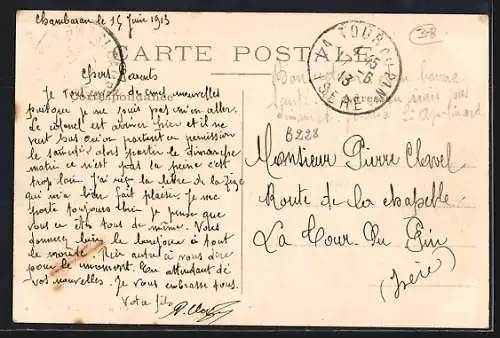 Chambaran le 15 Juin 1913
CARTE POSTALE
Correspondance
Adresse
LA TOUR DU PIN
ISERE
B228
38
Chers Parents
Je vous envoie de mes nouvelles
puisque je ne puis pas m'en aller.
Le colonel est arriver hier et il ne
veut pas qu'on partent en permission
le samedi alors partir le dimanche
matin ce n'est pas la peine c'est
trop loin. J'ai reçu la lettre de la
qui m'a bien fait plaisir. Je me
porte toujours bien je pense que
vous en êtes tous de même. Vous
donnerez bien le bonjour à tout
le monde. Rien autre à vous dire
pour le moment. En attendant de
vos nouvelles. Je vous embrasse tous.
Votre fils
Monsieur Pierre Clavel
Route de la chapelle
La Tour Du Pin
(Isère)